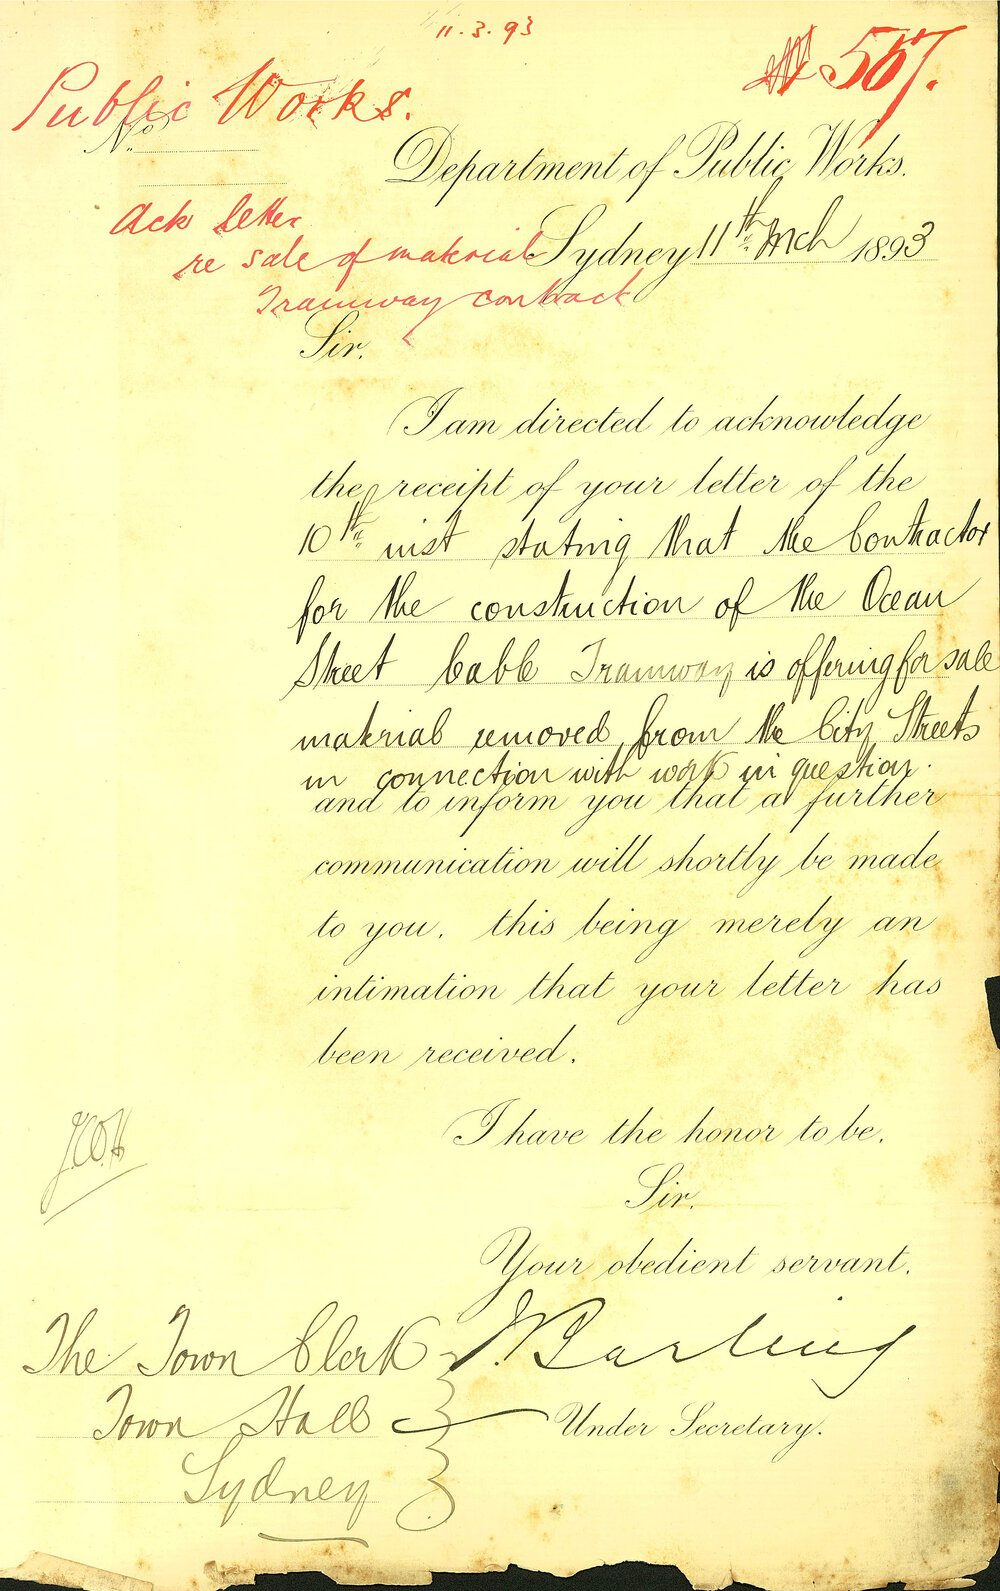 11.3.93
567.
Public Works.
No
Department of Public Works.
Ack letter
re sale of material
Tramway contract
Sydney 11th Mch 1893
Sir.
I am directed to acknowledge
the receipt of your letter of the
10th inst stating that the Contractor
for the construction of the Ocean
Street Cable Tramway is offering for sale
material removed from the City Streets
in connection with work in question.
and to inform you that a further
communication will shortly be made
to you. this being merely an
intimation that your letter has
been received.
I have the honor to be.
Sir.
Your obedient servant.
J. Barling
Under Secretary.
The Town Clerk
Town Hall
Sydney